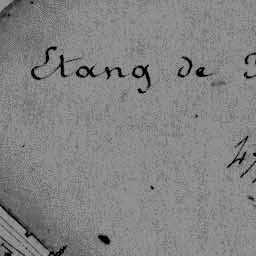 Etang de